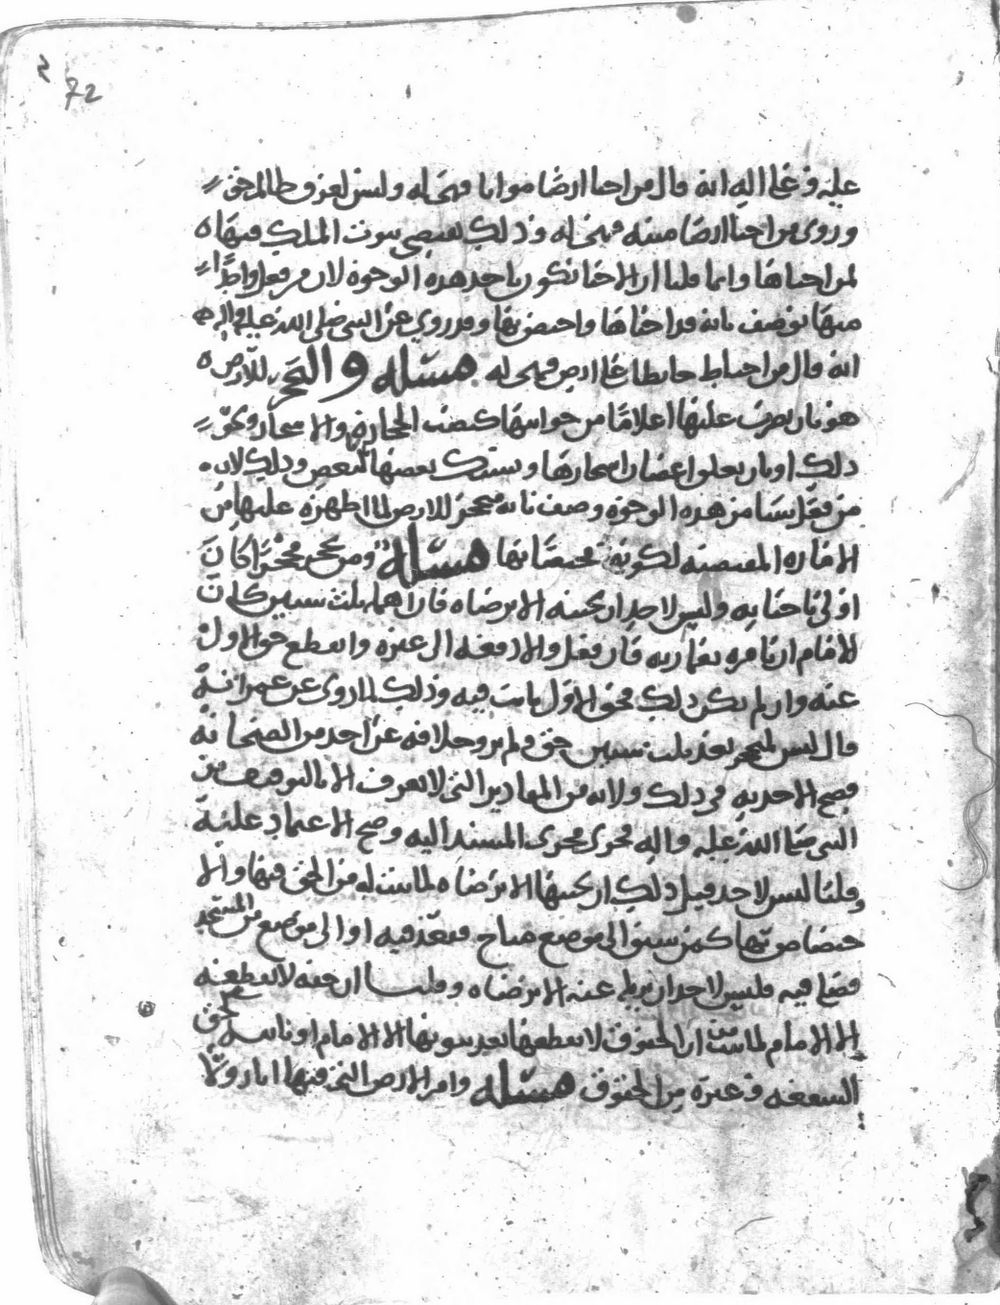 72
عليه وعلى اله انه قال من احيا ارضا مواتا فهي له وليس لعرق ظالم حق
وروى من احيا ارضا ميته فهي له وذلك يقتضي ثبوت الملك فيها
لمن احياها وانما قلنا ان الاحيا تكون باحد هذه الوجوه لان من فعل واحدا
منها توصف بانه قد احياها واختص بها وقد روي عن النبي صلى الله عليه واله
انه قال من احاط حايطا على ارض فهي له مسئله والتحجر للارض
هو بان يضرب عليها اعلاما من جوانبها كنصب الحجاره والاشجار ونحو
ذلك او بان يعلق اغصان اشجارها ويشبك بعضها ببعض وذلك لانه
من فعل شيا من هذه الوجوه وصف بانه محجر للارض لما اظهره عليها من
الاماره المقتضيه لكونه مختصا بها مسئله ومن تحجر محجرا كان
اولى باحيايه وليس لاحد ان يحييه الا برضاه فان اهمله ثلث سنين كان
للامام ان يامره بعمارته فان فعل والا دفعه الى غيره وانقطع حق الاول
عنه وان لم يكن ذلك فحق الاول ثابت فيه وذلك لما روى عن عمر انه
قال ليس لمحجر بعد ثلث سنين حق ولم يرو خلافه عن احد من الصحابه
فصح الاخذ به في ذلك ولانه من المقادير التي لا تعرف الا بالتوقيف من
النبي صلى الله عليه واله فجرى مجرى المسند اليه وصح الاعتماد عليه
وقلنا ليس لاحد قبل ذلك ان يحييها الا برضاه لما ثبت له من الحق فيها والا
ختصاص بها كمن سبق الى موضع مباح فقعد فيه او الى موضع من المسجد
فصلى فيه فليس لاحد ان يزيله عنه الا برضاه وقلنا ان حقه لا يقطعه
الا الامام لما ثبت من ان الحقوق لا يقطعها بعد ثبوتها الا الامام او نايبه كحق
الشفعه وغيره من الحقوق مسئله وامر الارض التي فيها اثار ولا